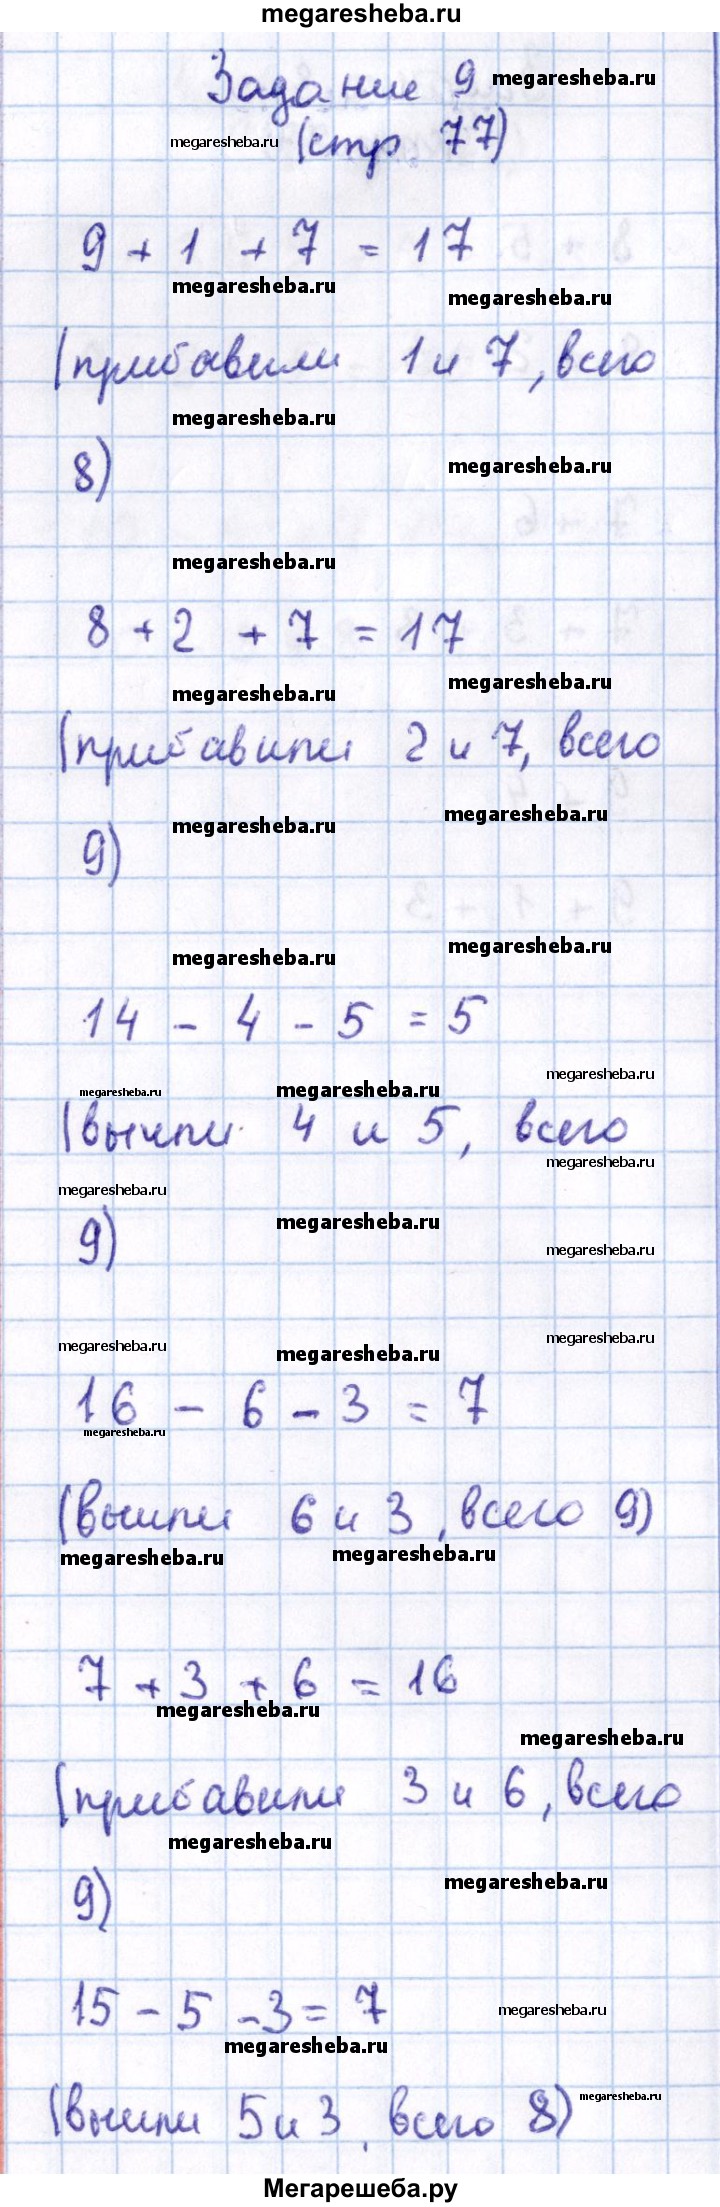 megaresheba.ru
Задание 9 megaresheba.ru
megaresheba.ru (стр. 77)
9 + 1 + 7 = 17
megaresheba.ru megaresheba.ru
(прибавили 1 и 7, всего
megaresheba.ru
8) megaresheba.ru
megaresheba.ru
8 + 2 + 7 = 17
megaresheba.ru megaresheba.ru
(прибавили 2 и 7, всего
megaresheba.ru megaresheba.ru
9)
megaresheba.ru megaresheba.ru
14 - 4 - 5 = 5
megaresheba.ru megaresheba.ru megaresheba.ru
(вычли 4 и 5, всего
megaresheba.ru megaresheba.ru
9) megaresheba.ru megaresheba.ru
megaresheba.ru megaresheba.ru megaresheba.ru
16 - 6 - 3 = 7
megaresheba.ru
(вычли 6 и 3, всего 9)
megaresheba.ru megaresheba.ru
7 + 3 + 6 = 16
megaresheba.ru megaresheba.ru
(прибавили 3 и 6, всего
megaresheba.ru
9) megaresheba.ru
15 - 5 - 3 = 7 megaresheba.ru
megaresheba.ru
(вычли 5 и 3, всего 8) megaresheba.ru
Мегарешеба.ру